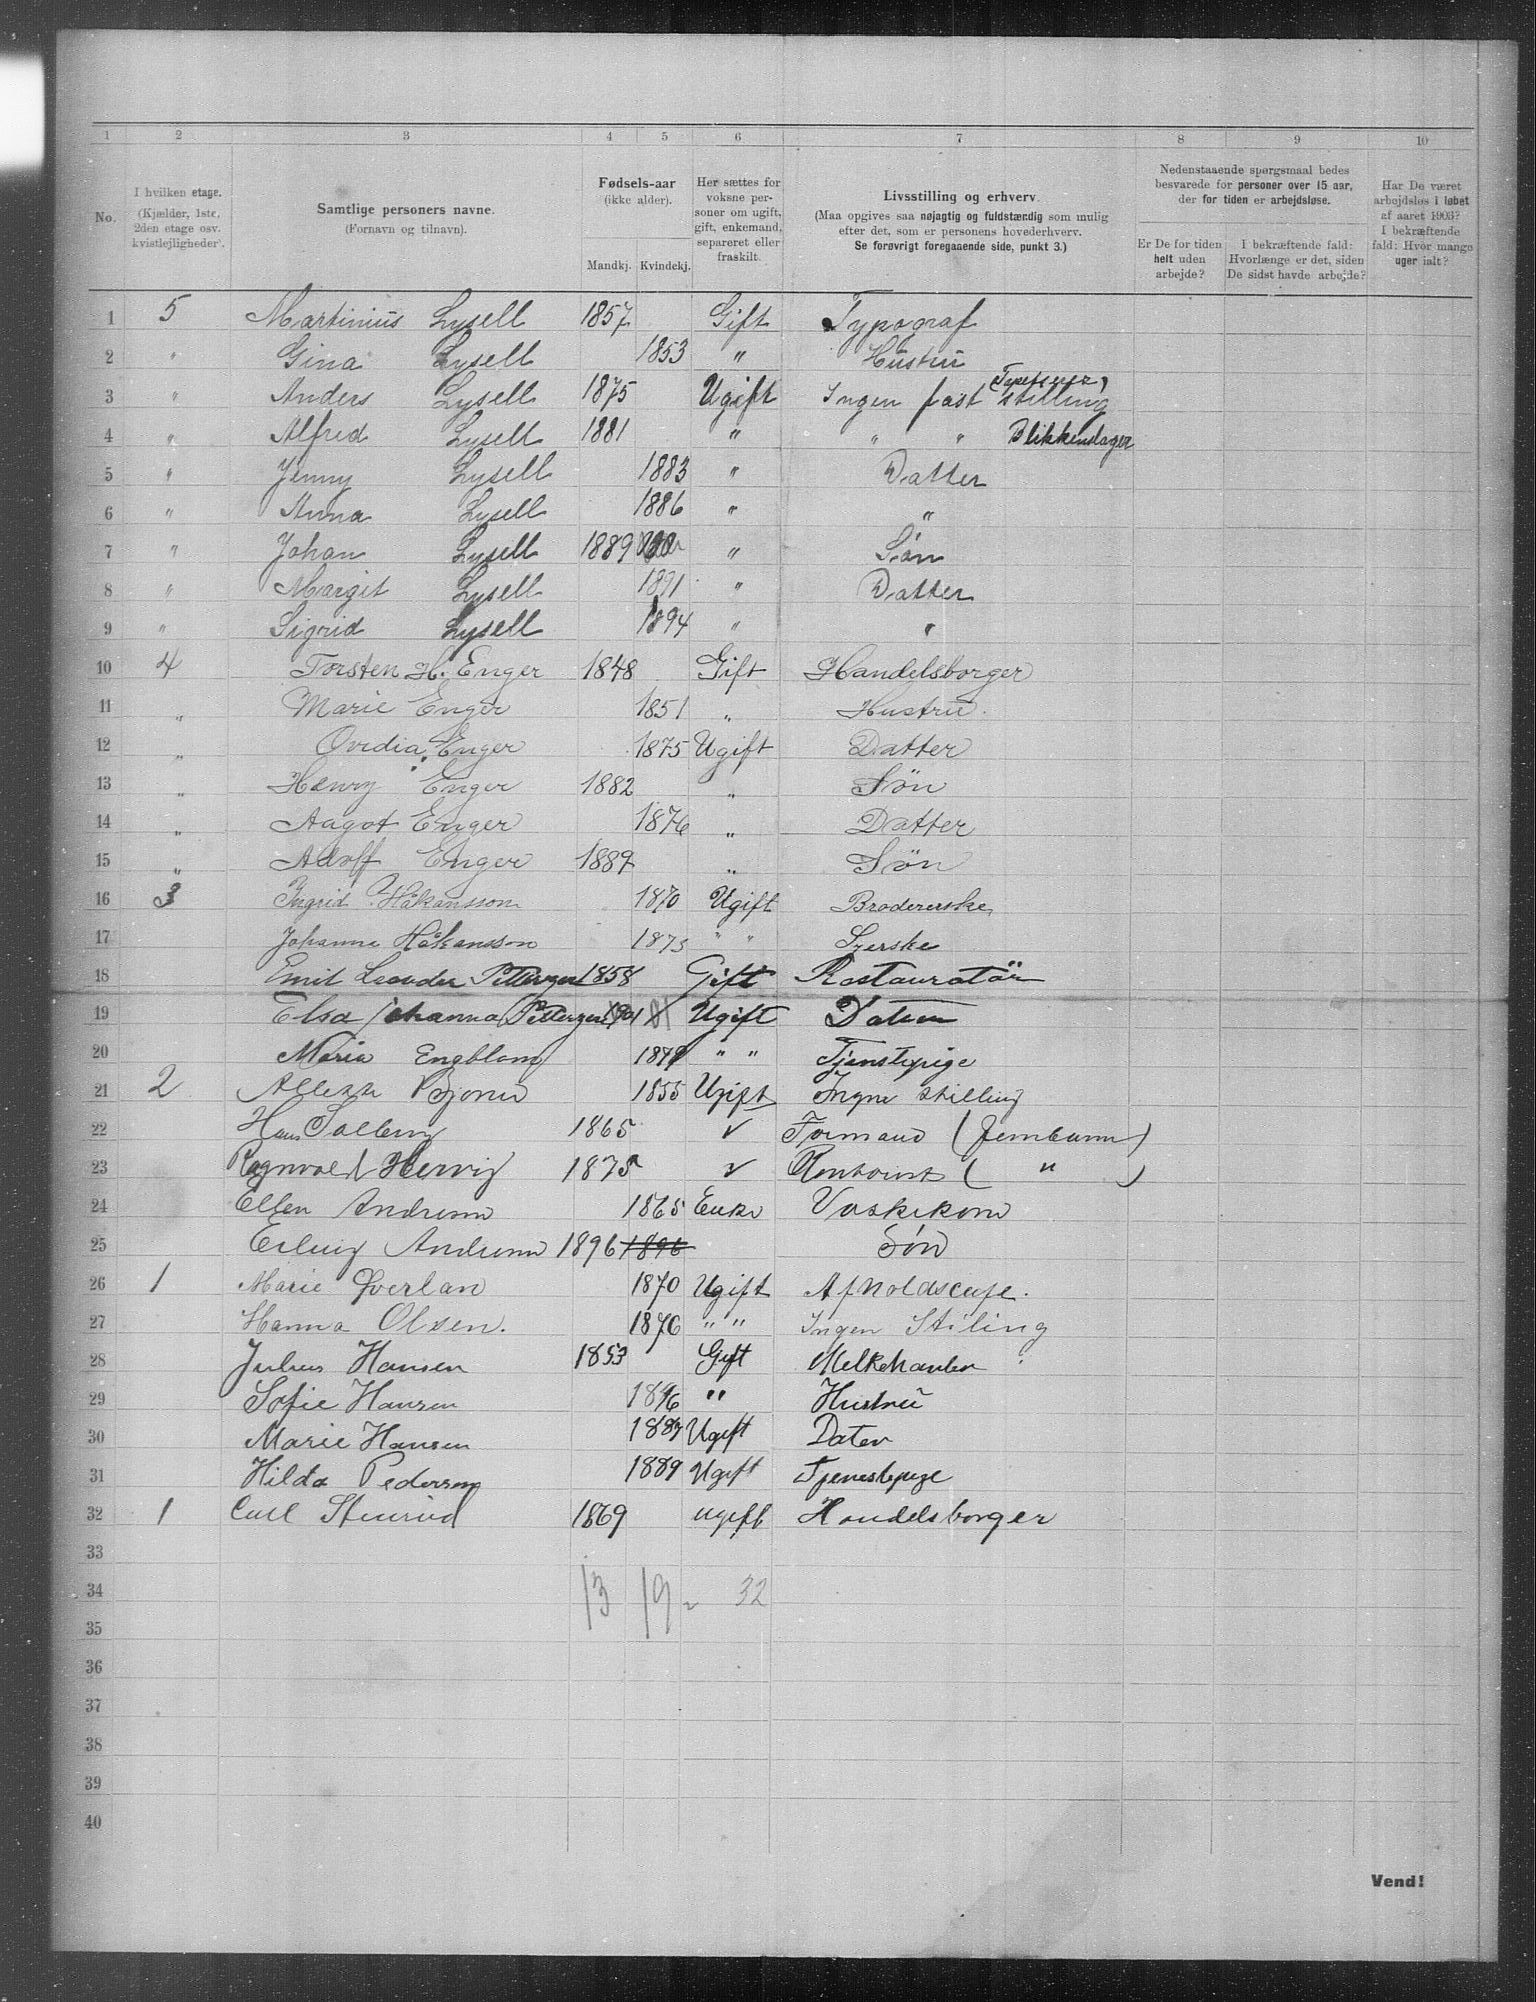 1 2 3 4 5 6 7 8 9 10
No. I hvilken etage. (Kjælder, 1ste, 2den etage osv. kvistlejligheder). Samtlige personers navne. (Fornavn og tilnavn). Fødsels-aar (ikke alder). Mandkj. Kvindekj. Her sættes for voksne personer om ugift, gift, enkemand, separeret eller fraskilt. Livsstilling og erhverv. (Maa opgives saa nøjagtig og fuldstændig som mulig efter det, som er personens hovederhverv. Se forøvrigt foregaaende side, punkt 3.) Nedenstaaende spørgsmaal bedes besvarede for personer over 15 aar, der for tiden er arbejdsløse. Er De for tiden helt uden arbejde? I bekræftende fald: Hvorlænge er det, siden De sidst havde arbejde? Har De været arbejdsløs i løbet af aaret 1903? I bekræftende fald: Hvor mange uger ialt?
1 5 Martinius Lysell 1857 Gift Typograf
2 " Gina Lysell 1853 " Hustru
3 " Anders Lysell 1875 Ugift Ingen fast stilling
4 " Alfred Lysell 1881 " " " Blikkenslager
5 " Jenny Lysell 1883 " Datter
6 " Anna Lysell 1886 " "
7 " Johan Lysell 1889 " Søn
8 " Margit Lysell 1891 " Datter
9 " Sigrid Lysell 1894 " "
10 4 Torsten H. Enger 1848 Gift Handelsborger
11 " Marie Enger 1851 " Hustru.
12 " Ovidia Enger 1875 Ugift Datter
13 " Henry Enger 1882 " Søn
14 " Aagot Enger 1876 " Datter
15 " Adolf Enger 1889 " Søn
16 3 Ingrid Håkansson 1870 Ugift Brodererske
17 Johanna Håkansson 1873 " " Syerske
18 Emil Leander Pettersen 1858 Gift Restauratør
19 Elsa Johanna Pettersen Ugift Datter
20 Maria Engblom 1879 " " Tjenstepige
21 2 Bjørn 1855 Ugift Ingen stilling
22 Hans Solberg 1865 " Formand (Jernbanen)
23 Ragnvald Hervig 1875 " Kontorist ( " )
24 Ellen Andresen 1865 Enke Vaskekone
25 Erling Andresen 1896 1896 Søn
26 1 Marie Øverlan 1870 Ugift Afholdscafe.
27 Hanna Olsen. 1876 " " Ingen Stiling
28 Julius Hansen 1853 Gift Melkehandler
29 Sofie Hansen " Hustru
30 Marie Hansen 1887 Ugift Dater
31 Hilda Pedersen 1889 Ugift Tjenestepige
32 1 Carl Stenrud 1869 ugift Handelsborger
33
34 13 19 32
35
36
37
38
39
40
Vend!